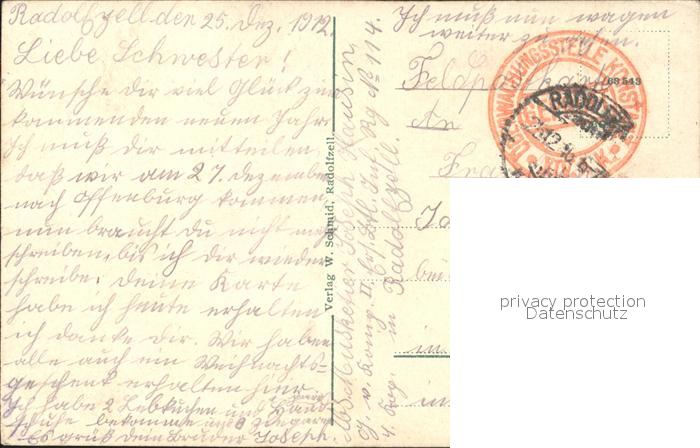 Radolfzell den 25. Dez. 1912.
Liebe Schwester!
Wünsche dir viel Glück zum
kommenden neuen Jahr
Ich muß dir mitteilen
daß wir am 27. Dezember
nach Offenburg kommen
nun braucht du nicht mehr
schreiben, bis ich dir wieder
schreibe. Deine Karte
habe ich heute erhalten
ich danke dir. Wir haben
alle auch ein Weihnachts-
geschenk erhalten hier.
Ich habe 2 Lebkuchen und Hand
schuhe bekomme und Zigarren
Es grüß dein Bruder Joseph.
Verlag W. Schmid, Radolfzell.
Abs. Musketier Joseph
J. v. König II. Ers. Btl. Inf. Rg No 114.
4. Krp in Radolfzell.
Ich muß nun wagen
weiter zu
Feldpostkarte
An
Fra
bei
in
in
63543
RADOLF
privacy protection
Datenschutz